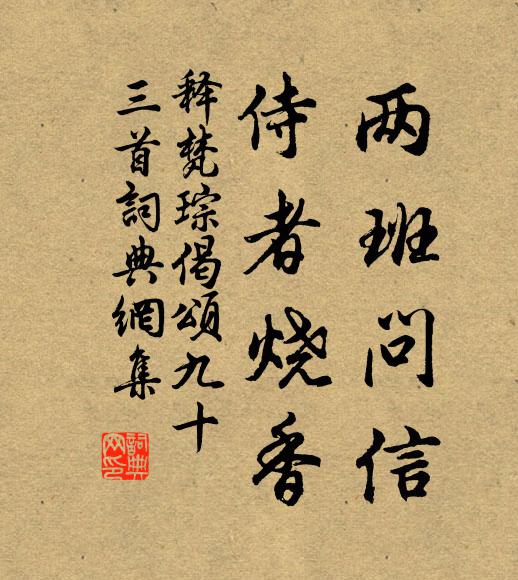 两班问信
侍者烧香
释梵琮偈颂九十
三首詞典網集
詞典
网印